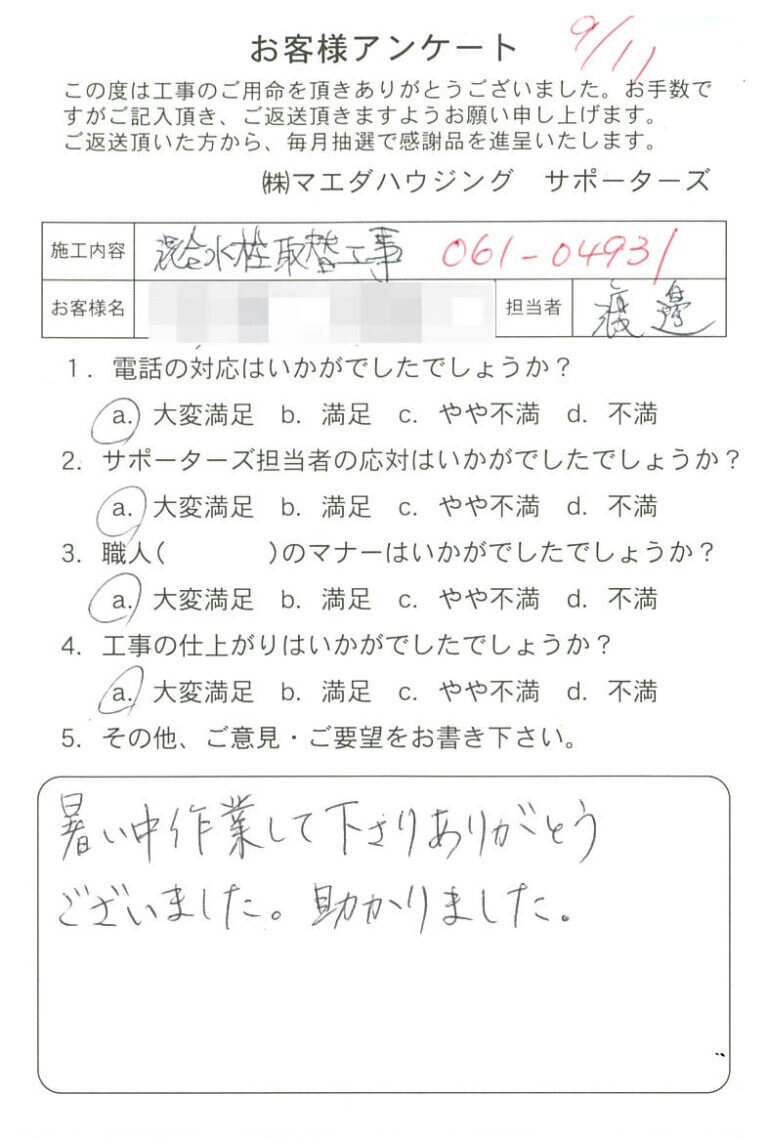 9/11
お客様アンケート
この度は工事のご用命を頂きありがとうございました。お手数で
すがご記入頂き、ご返送頂きますようお願い申し上げます。
ご返送頂いた方から、毎月抽選で感謝品を進呈いたします。
㈱マエダハウジング サポーターズ
施工内容 混合水栓取替工事 061-04931
お客様名 担当者 渡邊
1. 電話の対応はいかがでしたでしょうか？
a. 大変満足 b. 満足 c. やや不満 d. 不満
2. サポーターズ担当者の応対はいかがでしたでしょうか？
a. 大変満足 b. 満足 c. やや不満 d. 不満
3. 職人( )のマナーはいかがでしたでしょうか？
a. 大変満足 b. 満足 c. やや不満 d. 不満
4. 工事の仕上がりはいかがでしたでしょうか？
a. 大変満足 b. 満足 c. やや不満 d. 不満
5. その他、ご意見・ご要望をお書き下さい。
暑い中作業して下さりありがとう
ございました。助かりました。